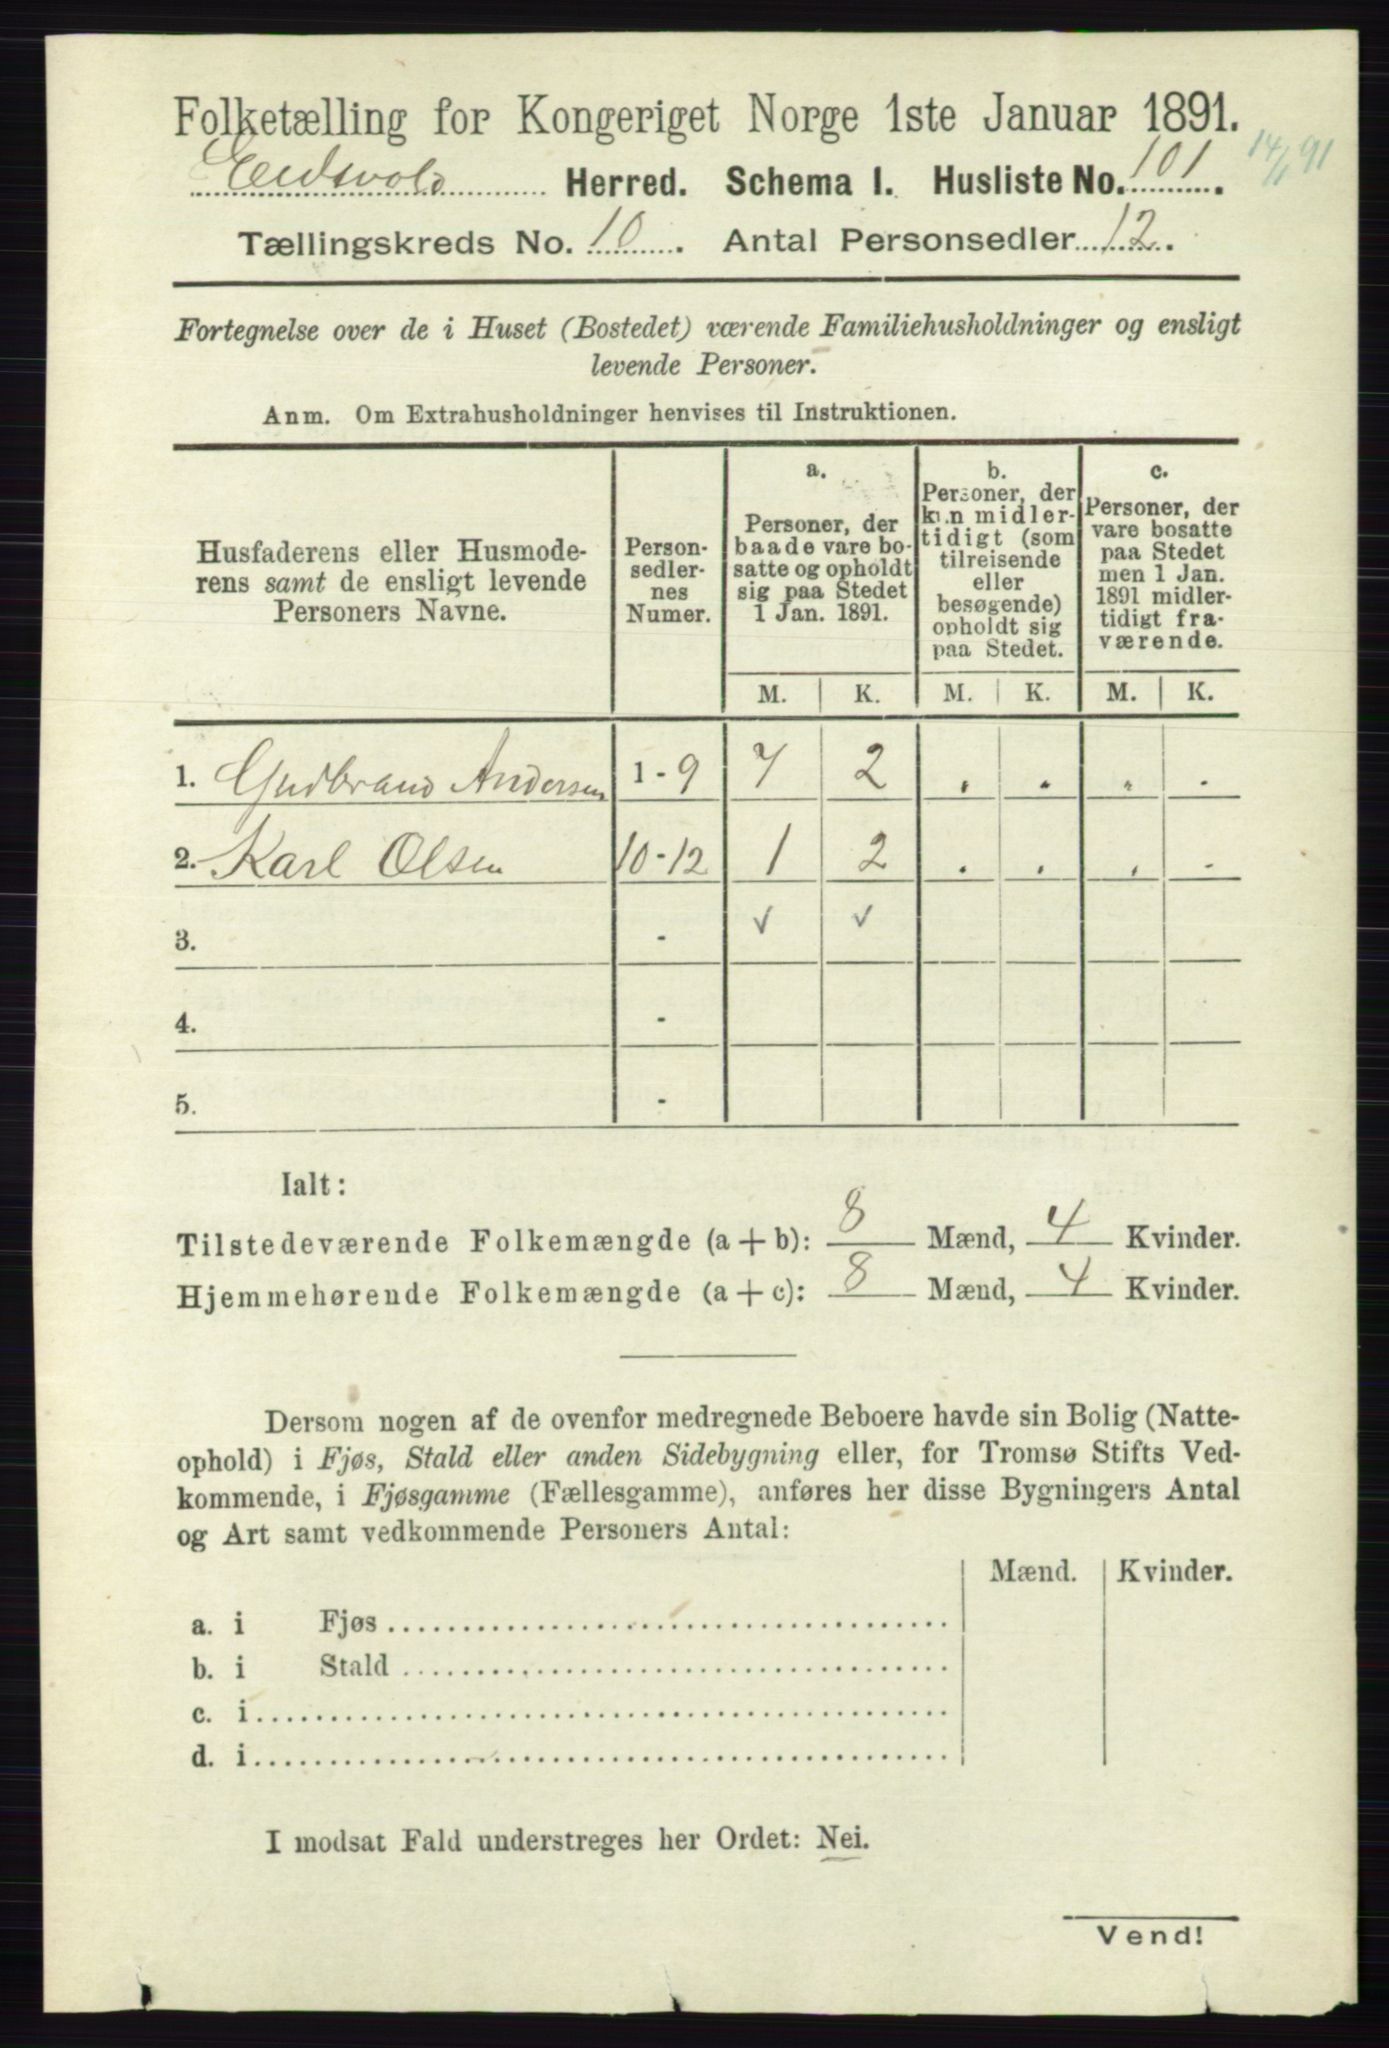 Folketælling for Kongeriget Norge 1ste Januar 1891.
14/1 91
Eidsvold Herred. Schema I. Husliste No. 101.
Tællingskreds No. 10. Antal Personsedler 12.
Fortegnelse over de i Huset (Bostedet) værende Familiehusholdninger og ensligt
levende Personer.
Anm. Om Extrahusholdninger henvises til Instruktionen.
Husfaderens eller Husmode-
rens samt de ensligt levende
Personers Navne.
Person-
sedler-
nes
Numer.
a.
Personer, der
baade vare bo-
satte og opholdt
sig paa Stedet
1 Jan. 1891.
b.
Personer, der
kun midler-
tidigt (som
tilreisende
eller
besøgende)
opholdt sig
paa Stedet.
c.
Personer, der
vare bosatte
paa Stedet
men 1 Jan.
1891 midler-
tidigt fra-
værende.
M. K. M. K. M. K.
1. Gudbrand Andersen 1 - 9 7 2 . . . .
2. Karl Olsen 10-12 1 2 . . . .
3. - ✓ ✓
4. -
5. -
Ialt:
Tilstedeværende Folkemængde (a + b): 8 Mænd, 4 Kvinder.
Hjemmehørende Folkemængde (a + c): 8 Mænd, 4 Kvinder.
Dersom nogen af de ovenfor medregnede Beboere havde sin Bolig (Natte-
ophold) i Fjøs, Stald eller anden Sidebygning eller, for Tromsø Stifts Ved-
kommende, i Fjøsgamme (Fællesgamme), anføres her disse Bygningers Antal
og Art samt vedkommende Personers Antal:
Mænd. Kvinder.
a. i Fjøs
b. i Stald
c. i
d. i
I modsat Fald understreges her Ordet: Nei.
Vend!